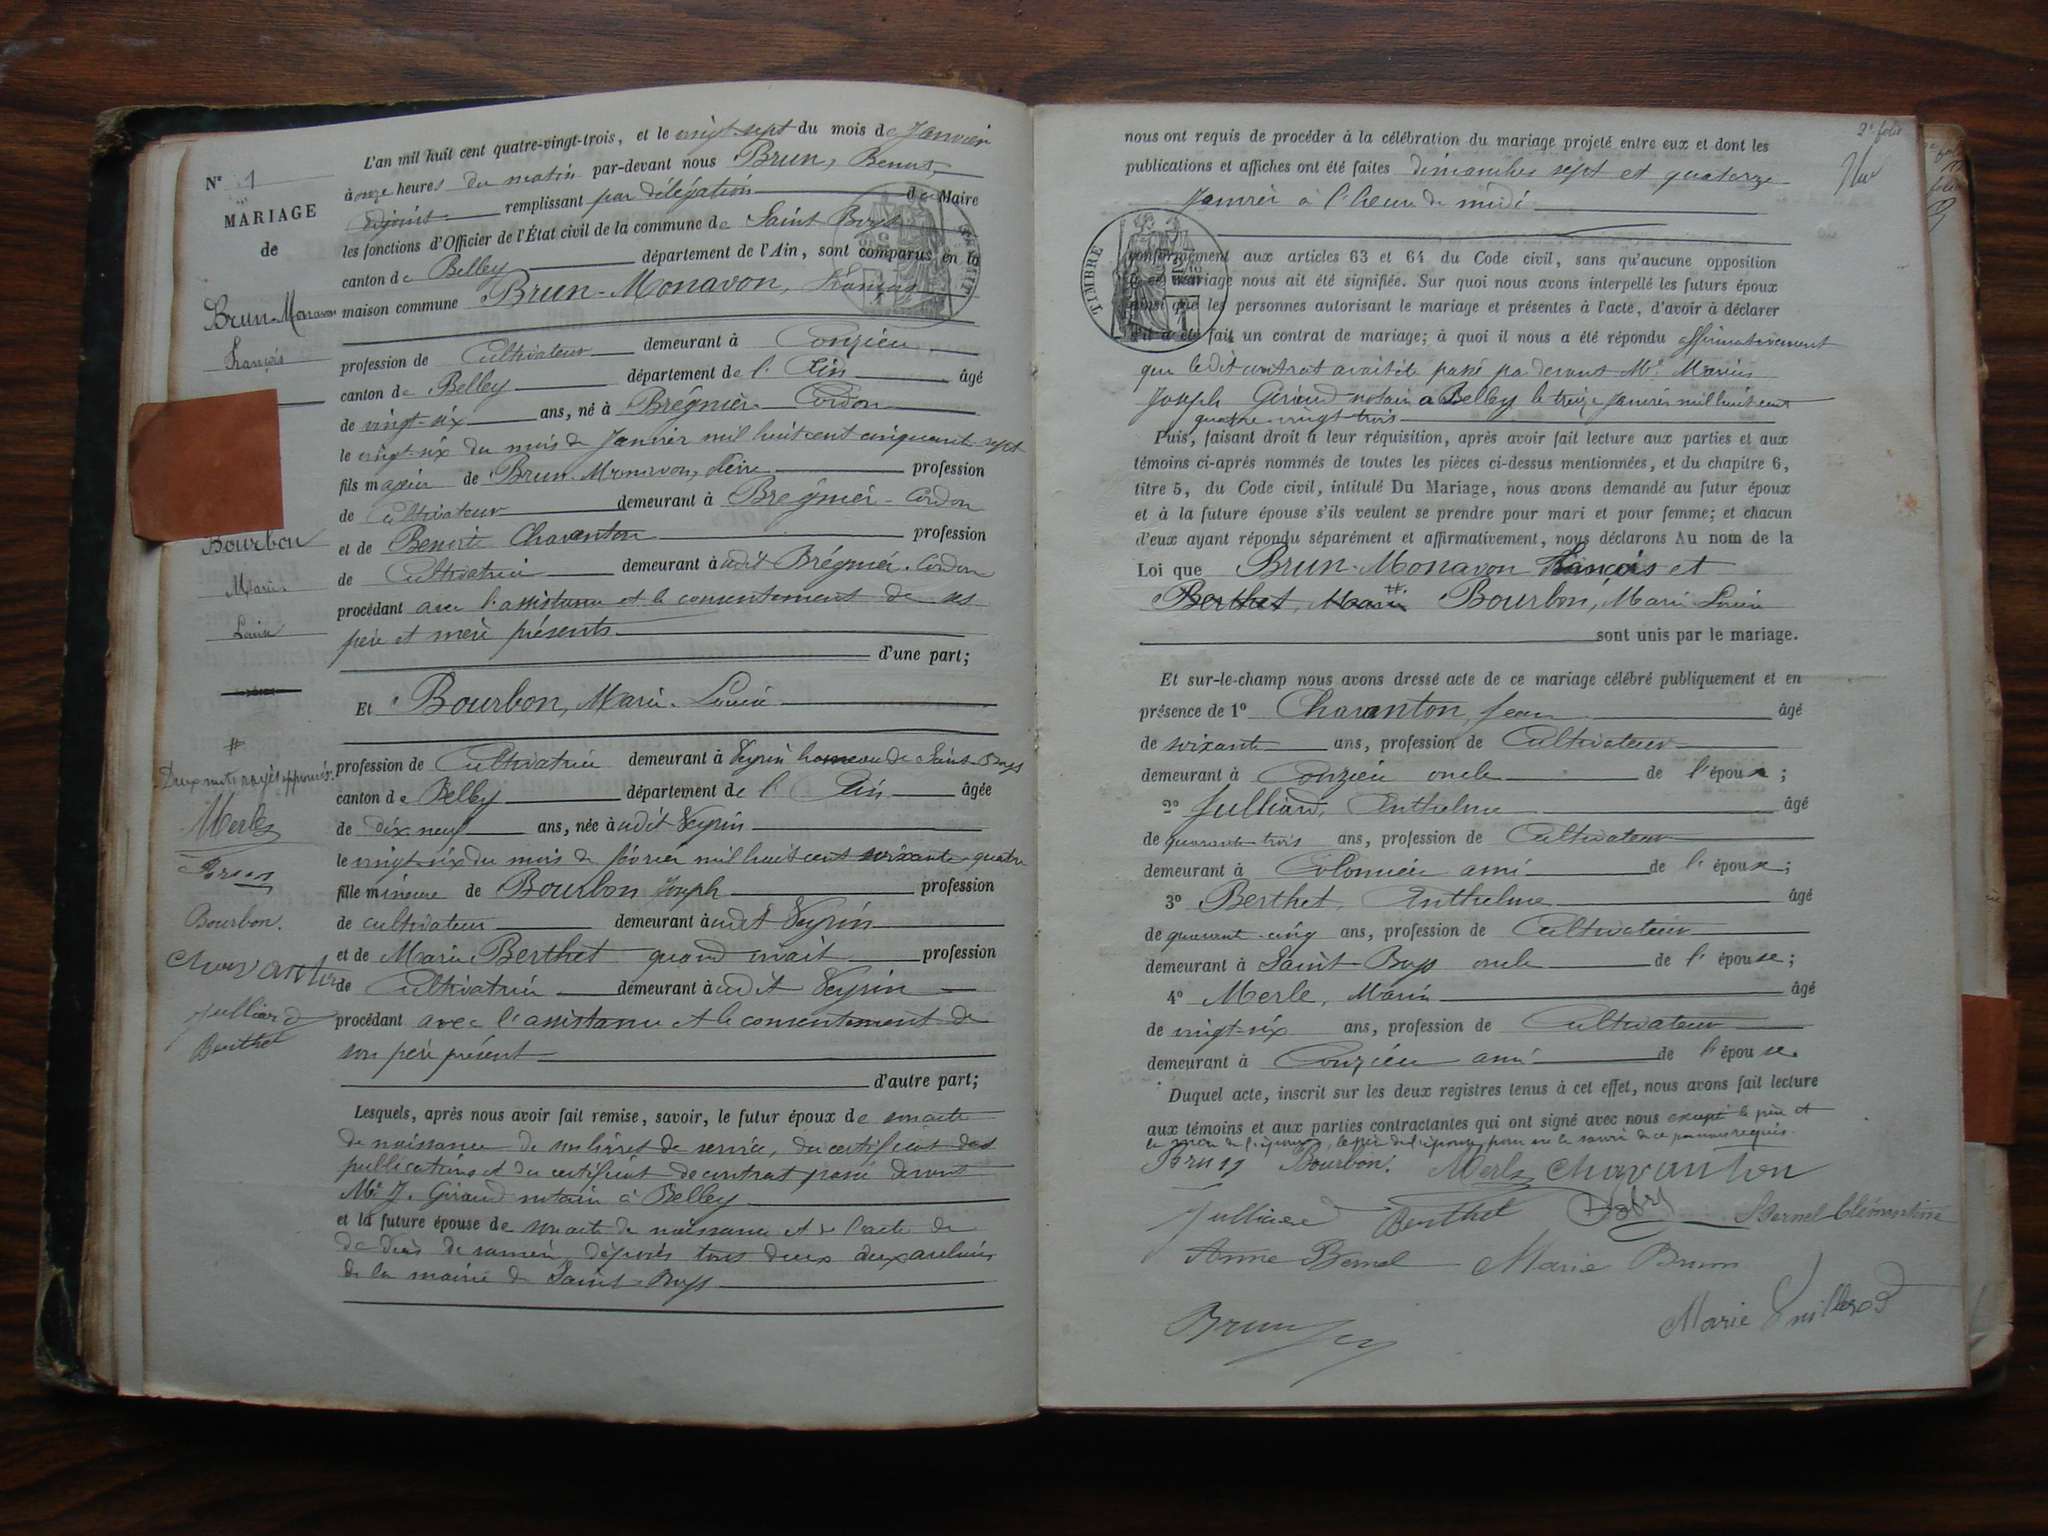 L'an mil huit cent quatre-vingt-trois, et le vingt-sept du mois de Janvier
N° 1
à onze heures du matin par-devant nous Brun, Benoit,
adjoint remplissant par délégation de Maire
MARIAGE
de
les fonctions d'Officier de l'État civil de la commune de Saint Buys
canton de Belley département de l'Ain, sont comparus en la
maison commune Brun-Monavon, François
Brun-Monavon
François
profession de Cultivateur demeurant à Conzieu
canton de Belley département de l'Ain âgé
de vingt-six ans, né à Brégnier-Cordon
le vingt-six du mois de Janvier mil huit cent cinquante sept
fils majeur de Brun-Monavon, profession
de Cultivateur demeurant à Brégnier-Cordon
et de Benoite Chavanton profession
Bourbon
de Cultivatrice demeurant à udit Brégnier-Cordon
Marie
procédant avec l'assistance et le consentement de ses
Louise
père et mère présents
d'une part;
Et Bourbon, Marie Louise
#
profession de Cultivatrice demeurant à Veyrin hameau de Saint-Buys
Deux mots rayés approuvés.
canton de Belley département de l'Ain âgée
Merle
de dix-neuf ans, née à udit Veyrin
le vingt-six du mois de février mil huit cent soixante-quatre
Brun
fille mineure de Bourbon Joseph profession
Bourbon.
de cultivateur demeurant à udit Veyrin
et de Marie Berthet quand vivait profession
Chavanton
de Cultivatrice demeurant à udit Veyrin
Julliard
procédant avec l'assistance et le consentement de
Berthet
son père présent
d'autre part;
Lesquels, après nous avoir fait remise, savoir, le futur époux de son acte
de naissance de son livret de service, du certificat des
publications et du certificat de contrat passé devant
Me J. Giraud notaire à Belley
et la future épouse de son acte de naissance et de l'acte de
décès de sa mère, déposés tous deux aux archives
de la mairie de Saint-Buys
2e folio
nous ont requis de procéder à la célébration du mariage projeté entre eux et dont les
publications et affiches ont été faites dimanches sept et quatorze
Janvier à l'heure de midi
TIMBRE
conformément aux articles 63 et 64 du Code civil, sans qu'aucune opposition
à ce mariage nous ait été signifiée. Sur quoi nous avons interpellé les futurs époux
ainsi que les personnes autorisant le mariage et présentes à l'acte, d'avoir à déclarer
s'il a été fait un contrat de mariage; à quoi il nous a été répondu affirmativement
que le dit contrat avait été passé par devant Me Marius
Joseph Giraud notaire à Belley le treize Janvier mil huit cent
quatre-vingt-trois
Puis, faisant droit à leur réquisition, après avoir fait lecture aux parties et aux
témoins ci-après nommés de toutes les pièces ci-dessus mentionnées, et du chapitre 6,
titre 5, du Code civil, intitulé Du Mariage, nous avons demandé au futur époux
et à la future épouse s'ils veulent se prendre pour mari et pour femme; et chacun
d'eux ayant répondu séparément et affirmativement, nous déclarons Au nom de la
Loi que Brun-Monavon François et
Berthet, Marie # Bourbon, Marie Louise
sont unis par le mariage.
Et sur-le-champ nous avons dressé acte de ce mariage célébré publiquement et en
présence de 1° Chavanton, Jean âgé
de soixante ans, profession de Cultivateur
demeurant à Conzieu oncle de l'époux;
2° Julliard, Anthelme âgé
de quarante-trois ans, profession de Cultivateur
demeurant à Colomieu ami de l'époux;
3° Berthet, Anthelme âgé
de quarante-cinq ans, profession de Cultivateur
demeurant à Saint-Buys oncle de l'épouse;
4° Merle, Marin âgé
de vingt-six ans, profession de Cultivateur
demeurant à Conzieu ami de l'épouse.
Duquel acte, inscrit sur les deux registres tenus à cet effet, nous avons fait lecture
aux témoins et aux parties contractantes qui ont signé avec nous excepté le père et
la mère de l'époux, le père de l'épouse, pour ne le savoir de ce par nous requis.
Brun Bourbon. Merle Chavanton
Julliard Berthet Bernel Clémentine
Anne Bernel Marie Brun
Brun Marie